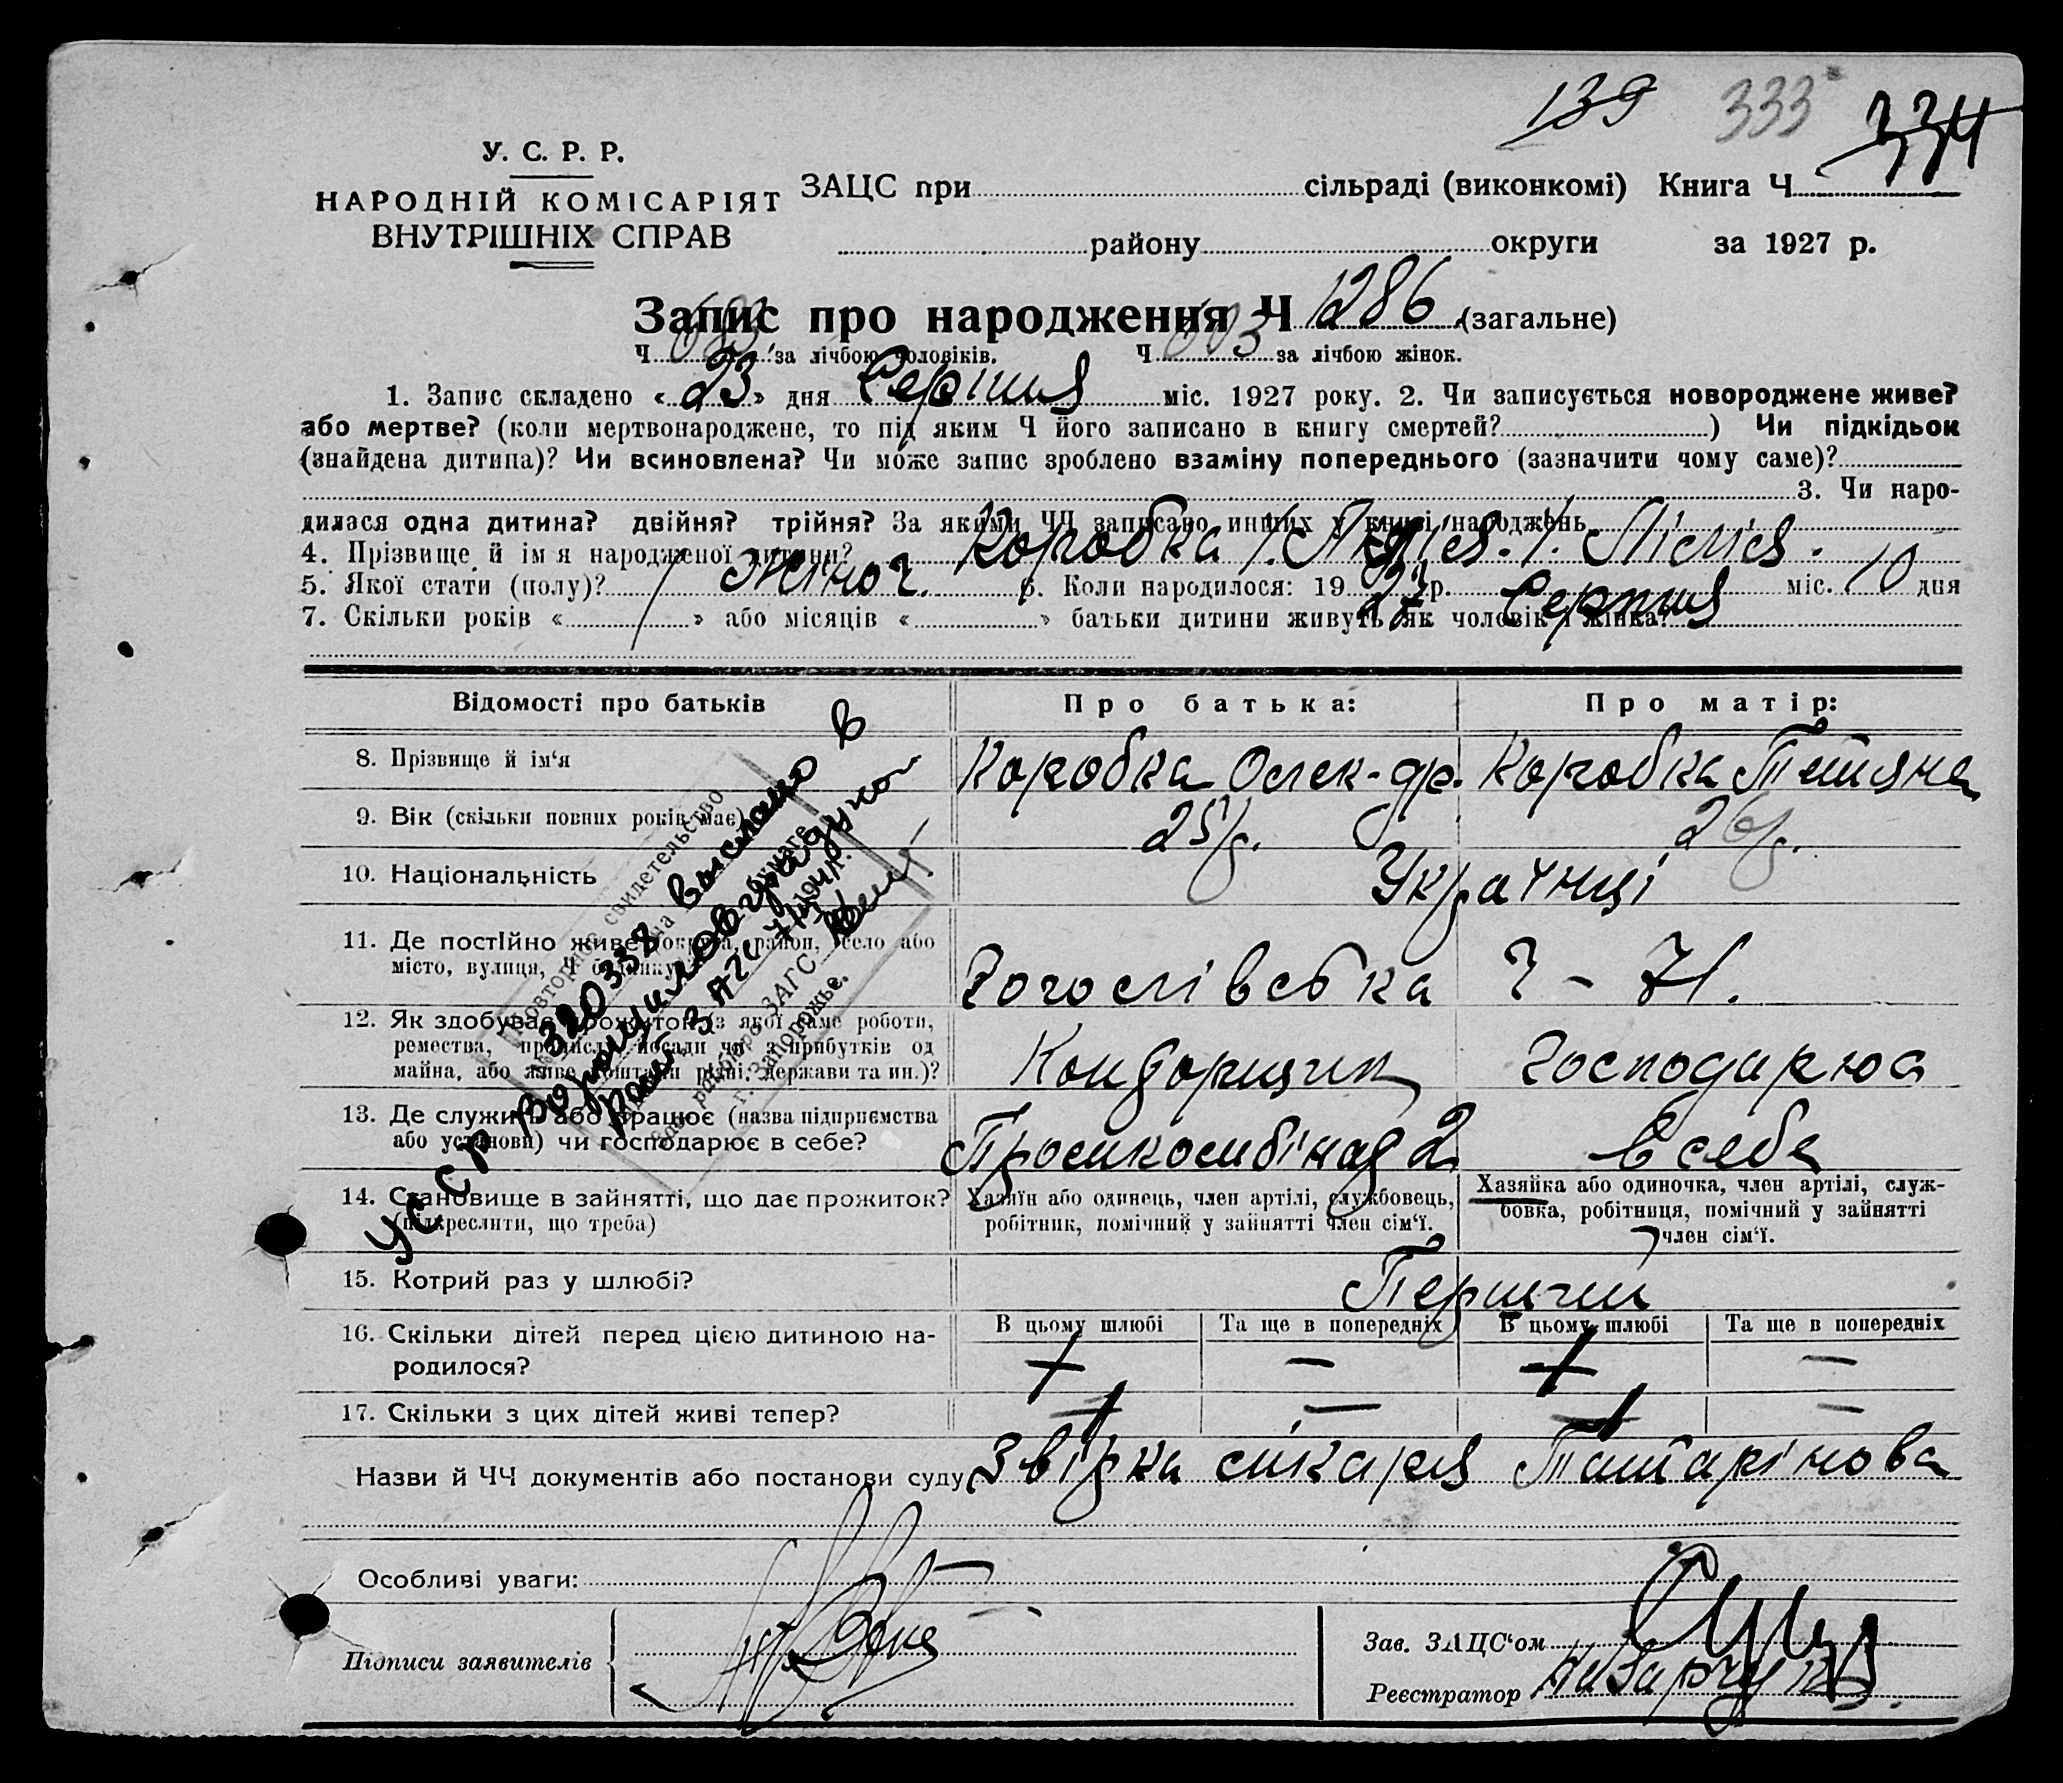 139 333 334
У. С. Р. Р.
НАРОДНІЙ КОМІСАРІЯТ
ВНУТРІШНІХ СПРАВ
ЗАЦС при сільраді (виконкомі) Книга Ч
району округи за 1927 р.
Запис про народження Ч 1286 (загальне)
Ч 683 за лічбою чоловіків. Ч 603 за лічбою жінок.
1. Запис складено « 23 » дня Серпня міс. 1927 року. 2. Чи записується новороджене живе?
або мертве? (коли мертвонароджене, то під яким Ч його записано в книгу смертей? ) Чи підкідьок
(знайдена дитина)? Чи всиновлена? Чи може запис зроблено взаміну попереднього (зазначити чому саме)?
3. Чи наро-
дилася одна дитина? двійня? трійня? За якими ЧЧ записано инших у книзі народжень
4. Прізвище й ім'я народженої дитини? Коробка Лілія.
5. Якої стати (полу)? жіноч. 6. Коли народилося: 19 27 р. Серпня міс. 10 дня
7. Скільки років « » або місяців « » батьки дитини живуть як чоловік і жінка?
Відомості про батьків Про батька: Про матір:
8. Прізвище й ім'я Коробка Олек-др. Коробка Тетяна
9. Вік (скільки повних років має) 25 р. 26 р.
10. Національність Українці
11. Де постійно живе (округа, район, село або
місто, вулиця, Ч будинку) Богослівська Ч - 71.
12. Як здобуває прожиток (з якої саме роботи,
ремества, промислу, посади чи з прибутків од
майна, або живе коштами рідні, держави та ин.)? Конторщик Господарює
13. Де служить або працює (назва підприємства
або установи) чи господарює в себе? Промкомбінад 2 в себе
14. Становище в зайнятті, що дає прожиток?
(підкреслити, що треба)
Хазяїн або одинець, член артілі, службовець,
робітник, помічний у зайнятті член сім'ї.
Хазяйка або одиночка, член артілі, служ-
бовка, робітниця, помічний у зайнятті
член сім'ї.
15. Котрий раз у шлюбі? Перший
16. Скільки дітей перед цією дитиною на-
родилося?
В цьому шлюбі Та ще в попередніх В цьому шлюбі Та ще в попередніх
+ — + —
17. Скільки з цих дітей живі тепер? — —
Назви й ЧЧ документів або постанови суду Звірка лікаря Татарінова
Особливі уваги:
Підписи заявителів
Зав. ЗАЦС'ом
Реєстратор
Повторное свидетельство
320338 выслано в
УССР Ворошиловградском
ЗАГС
г. Запорожье.